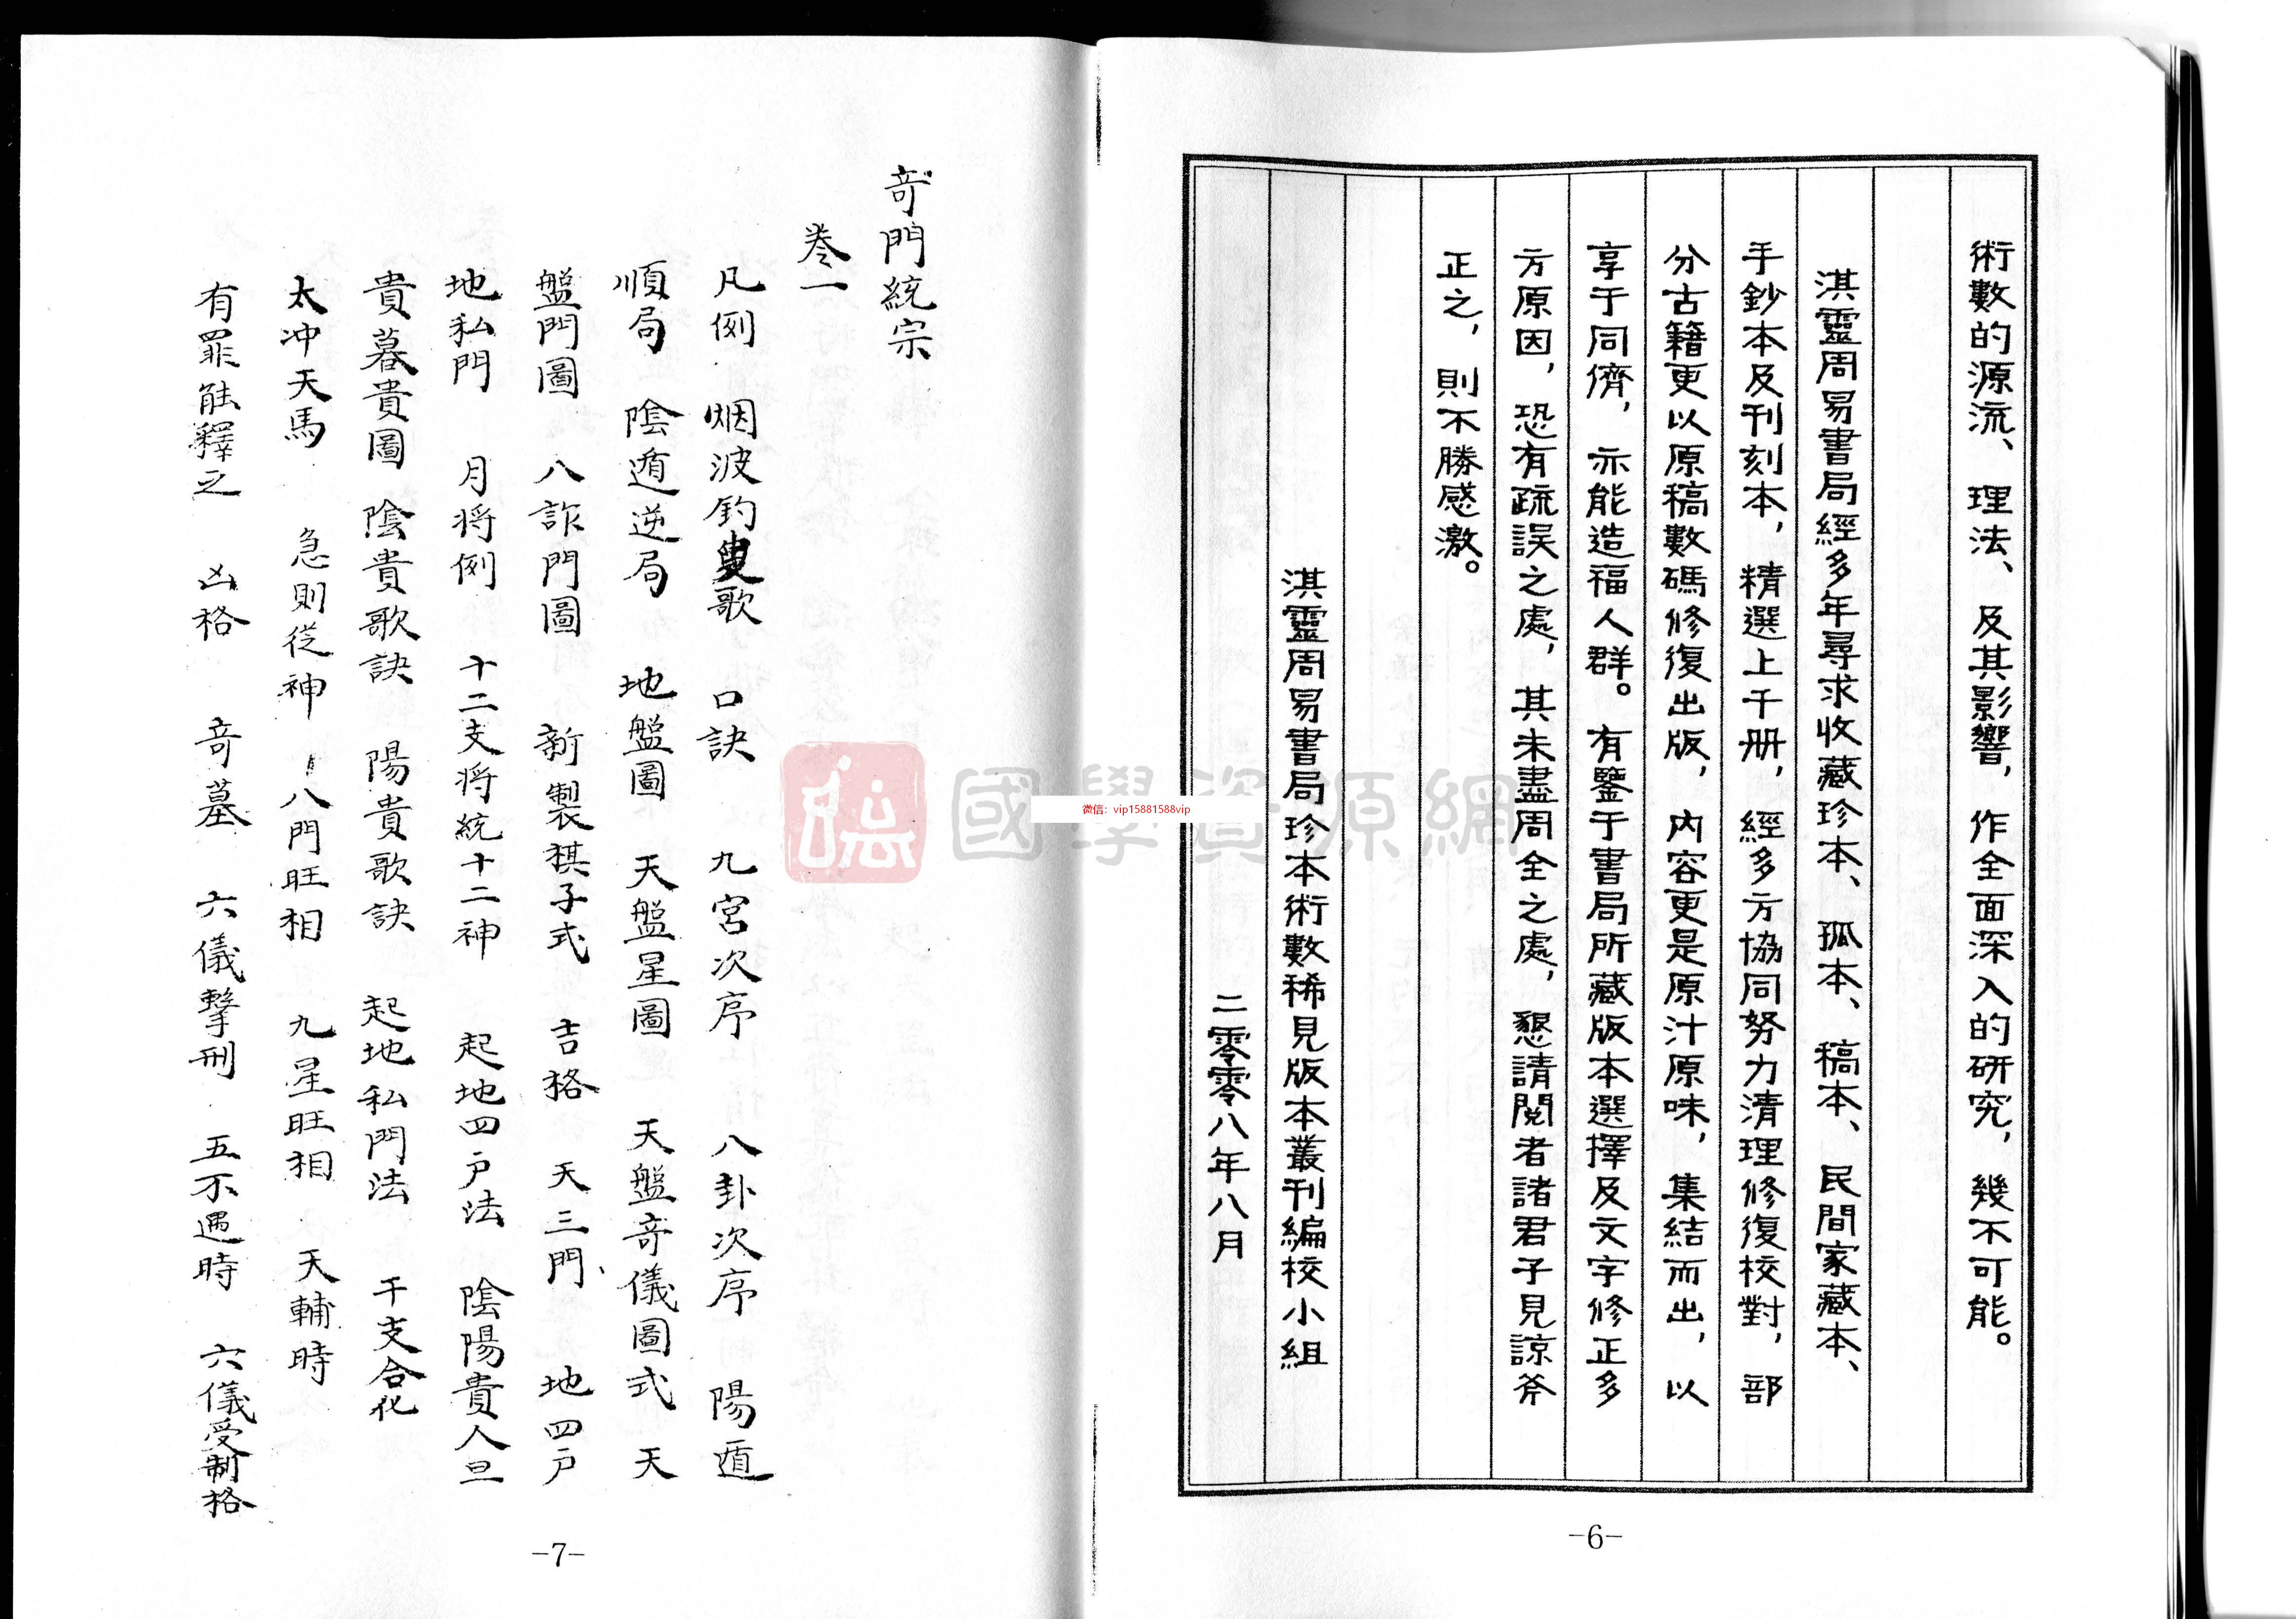 術數的源流、理法、及其影響，作全面深入的研究，幾不可能。
淇靈周易書局經多年尋求收藏珍本、孤本、稿本、民間家藏本、
手鈔本及刊刻本，精選上千册，經多方協同努力清理修復校對，部
分古籍更以原稿數碼修復出版，内容更是原汁原味，集結而出，以
享于同儕，亦能造福人群。有鑒于書局所藏版本選擇及文字修正多
方原因，恐有疏誤之處，其未盡周全之處，懇請閱者諸君子見諒斧
正之，則不勝感激。
淇靈周易書局珍本術數稀見版本叢刊編校小組
二零零八年八月
-6-
奇門統宗
卷一
凡例 烟波釣叟歌 口訣 九宮次序 八卦次序 陽遁
順局 陰遁逆局 地盤圖 天盤星圖 天盤奇儀圖式 天
盤門圖 八詐門圖 新製棋子式 吉格 天三門 地四户
地私門 月将例 十二支将統十二神 起地四户法 陰陽貴人旦
貴暮貴圖 陰貴歌訣 陽貴歌訣 起地私門法 干支合化
太冲天馬 急則從神 八門旺相 九星旺相 天輔時
有罪能釋之 凶格 奇墓 六儀擊刑 五不遇時 六儀受制格
-7-
國學資源網
微信：vip15881588vip